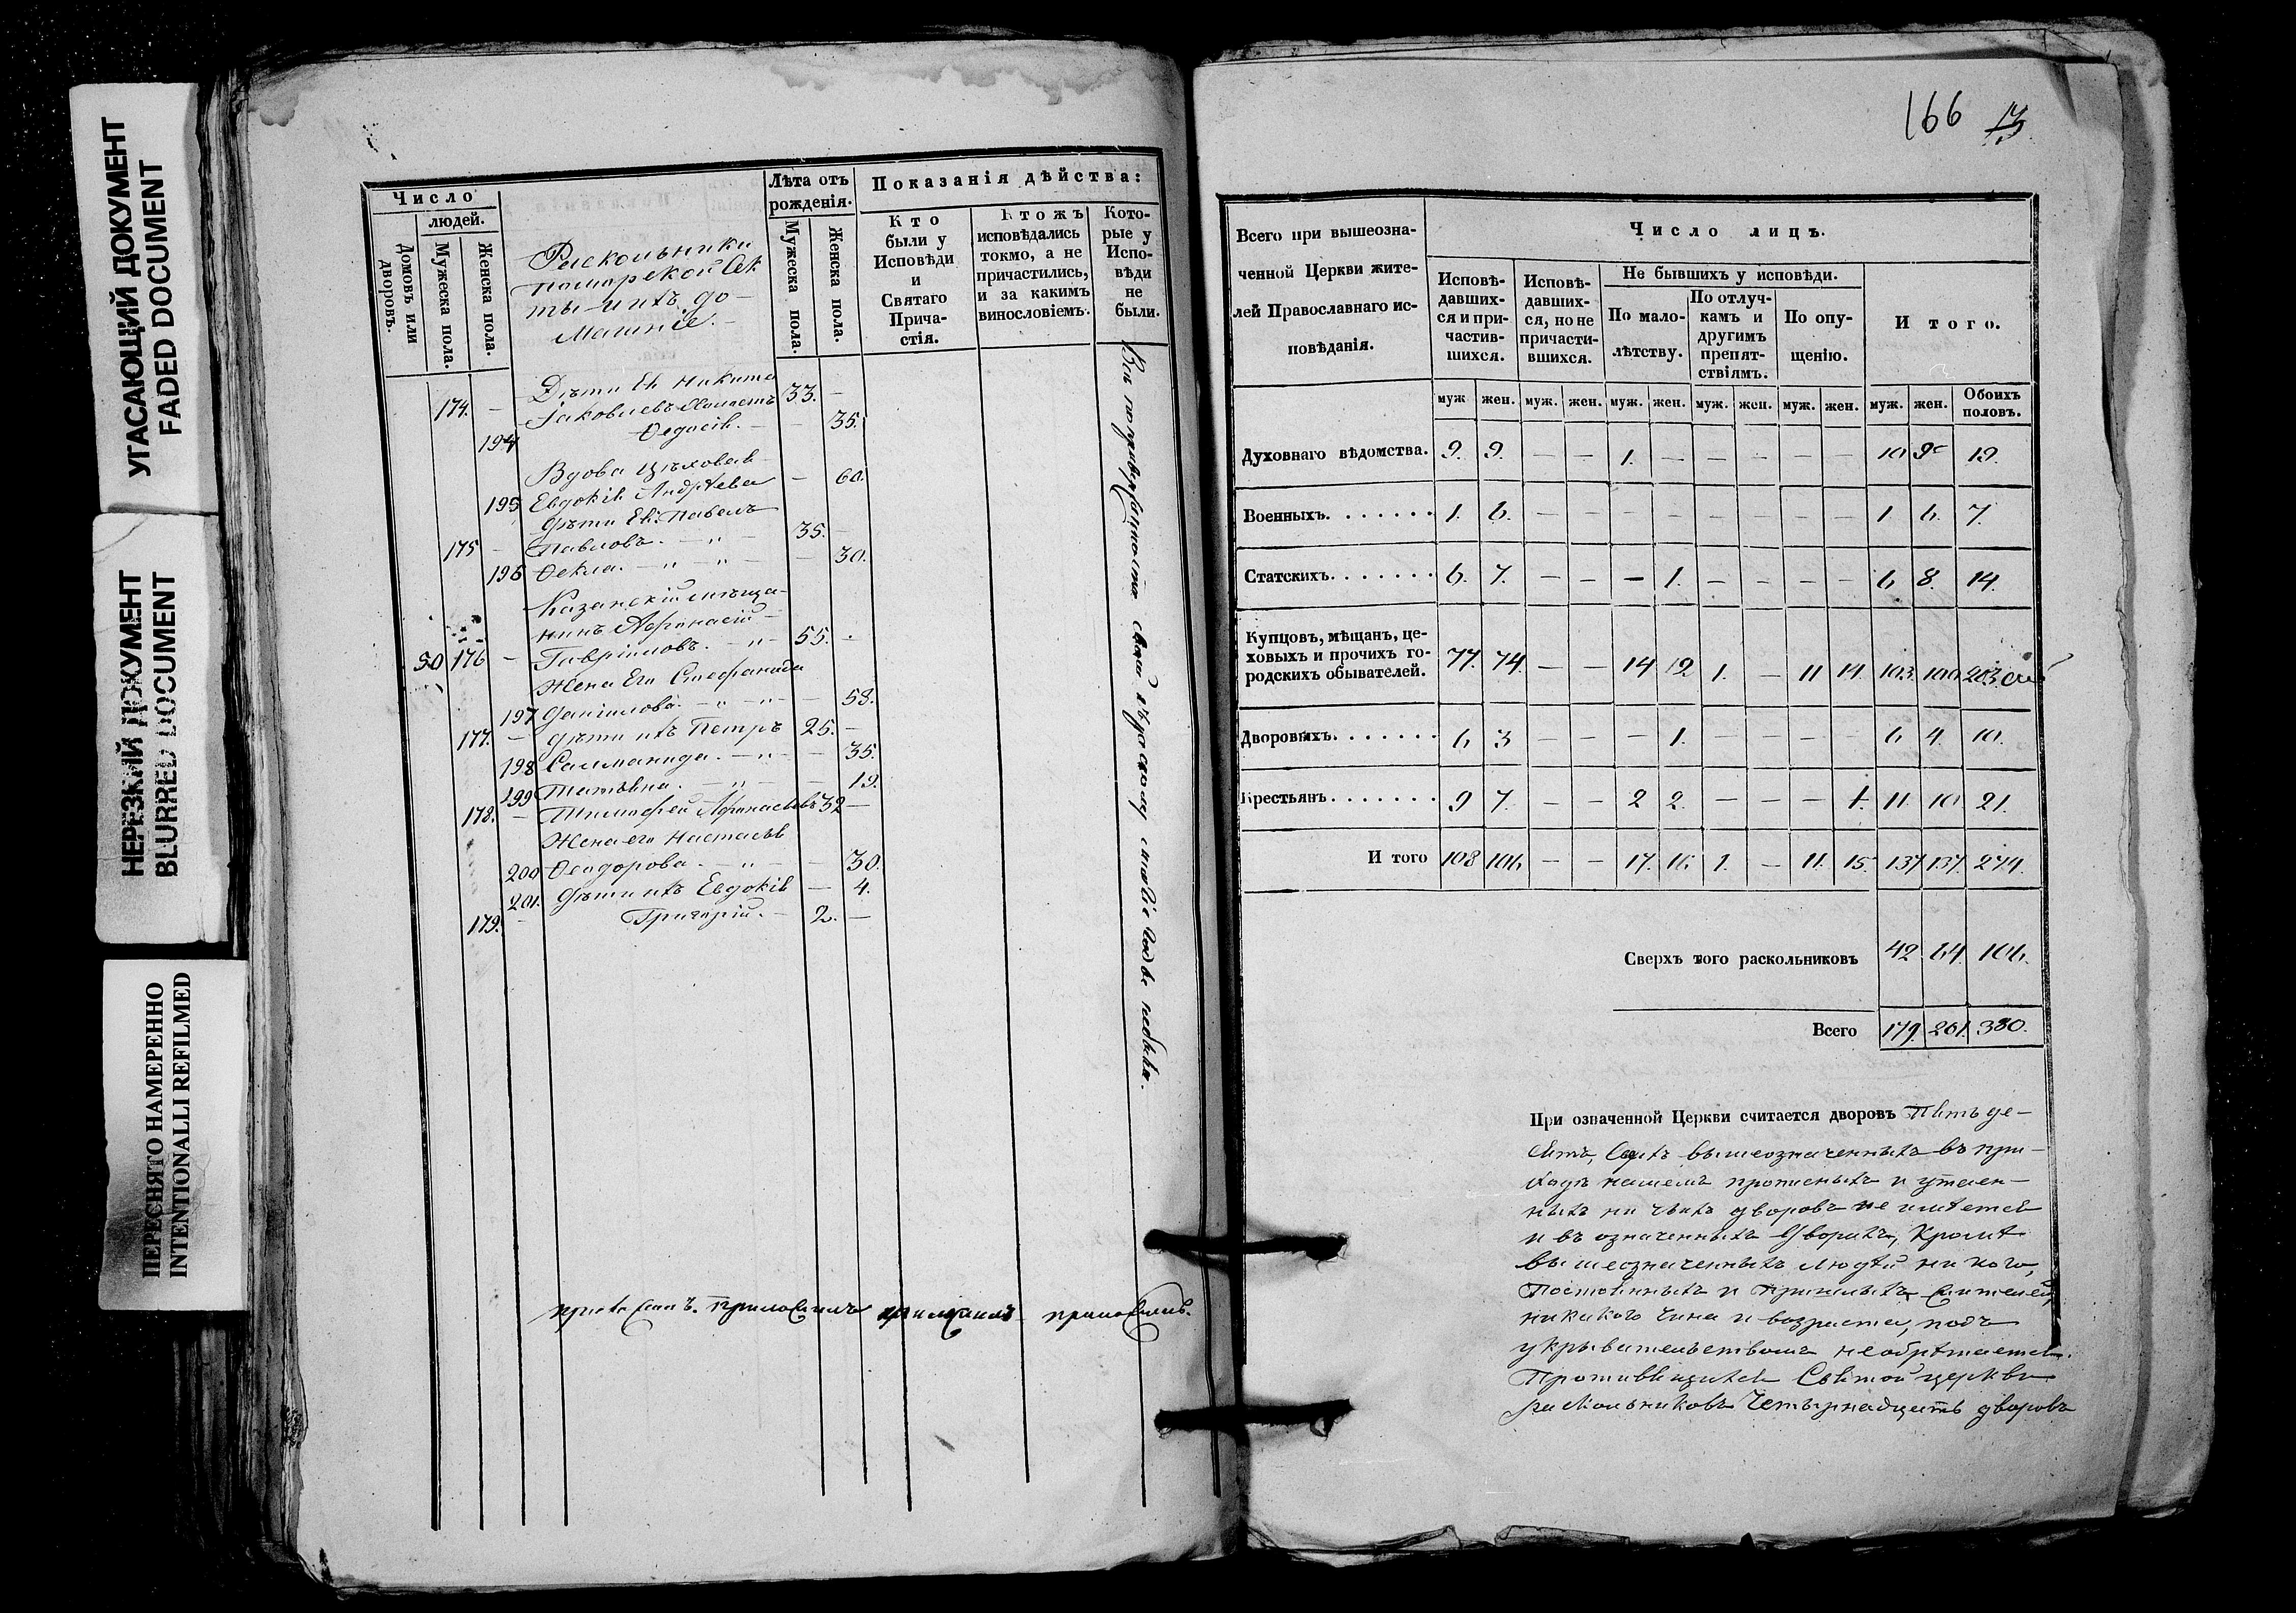 УГАСАЮЩИЙ ДОКУМЕНТ
FADED DOCUMENT
НЕРЕЗКИЙ ДОКУМЕНТ
BLURRED DOCUMENT
ПЕРЕСНЯТО НАМЕРЕННО
INTENTIONALLI REFILMED
Число
людей.
Домовъ или дворовъ.
Мужеска пола.
Женска пола.
Раскольники
поморской Сек
ты и ихъ до-
машніе.
Лѣта отъ рожденія.
Мужеска пола.
Женска пола.
Показанія дѣйства:
Кто были у Исповѣди и Святаго Прича-стія.
Ктожъ исповѣдались токмо, а не причастились, и за какимъ винословіемъ.
Кото-рые у Испо-вѣди не были.
Дѣти Ея Никита
174. — Іаковлевъ Холостъ 33. —
194 Ѳедосія. — — 35.
Вдова цѣховая
195 Евдокія Андреева — 60.
дѣти Ея: Павелъ
175 — Павловъ. — „ — 35. —
196 Ѳекла. — „ — „ — — 30.
Казанскій мѣща-
нинъ Афонасій
50 176 — Гавріиловъ. — „ — 55. —
Жена Его Стефанида
197 Даніилова. — „ — „ — — 58.
177. — дѣти ихъ Петръ 25. —
198 Саломанида. — „ — — 35.
199 Татьяна. — „ — — 19.
178. — Тимофей Афонасьевъ 32 —
Жена его Настасья
200 Ѳеодорова. — „ — — 30.
201. Дѣти ихъ Евдокія — 4.
179. — Григорій. — 2. —
166 13
Всего при вышеозна-
ченной Церкви жите-
лей Православнаго ис-
повѣданія.
Число лицъ.
Исповѣ-давших-ся и при-частив-шихся.
Исповѣ-давших-ся, но не причасти-вшихся.
Не бывшихъ у исповѣди.
По мало-лѣтству.
По отлуч-камъ и другимъ препят-ствіямъ.
По опу-щенію.
Итого.
муж. жен. муж. жен. муж. жен. муж. жен. муж. жен. муж. жен. Обоихъ половъ.
Духовнаго вѣдомства. 9. 9. — — 1. — — — — — 10 9 19.
Военныхъ. 1. 6. — — — — — — — — 1. 6. 7.
Статскихъ. 6. 7. — — — 1. — — — — 6 8. 14.
Купцовъ, мѣщанъ, це-
ховыхъ и прочихъ го-
родскихъ обывателей. 77. 74. — — 14 12 1. — 11 14. 103. 100 203.
Дворовыхъ. 6 3 — — — 1. — — — — 6 4. 10.
Крестьянъ. 9 7. — — 2 2. — — — 1. 11. 10 21.
И того 108 106. — — 17. 16. 1. — 11. 15. 137 137. 274.
Сверхъ того раскольниковъ 42. 64. 106.
Всего 179. 201. 380.
При означенной Церкви считается дворовъ Пять де-
сятъ, вышеозначенныхъ въ при-
ходѣ нашемъ прописныхъ и утаен-
ныхъ ни чьихъ дворовъ не имѣется
и въ означенныхъ дворахъ, Кромѣ
вышеозначенныхъ людей ни кого,
Постоянныхъ и Пришлыхъ
никакого чина и возраста, подъ
укрывательствомъ не обрѣтается.
Противящихся Святой церкви
раскольниковъ Четырнадцать дворовъ